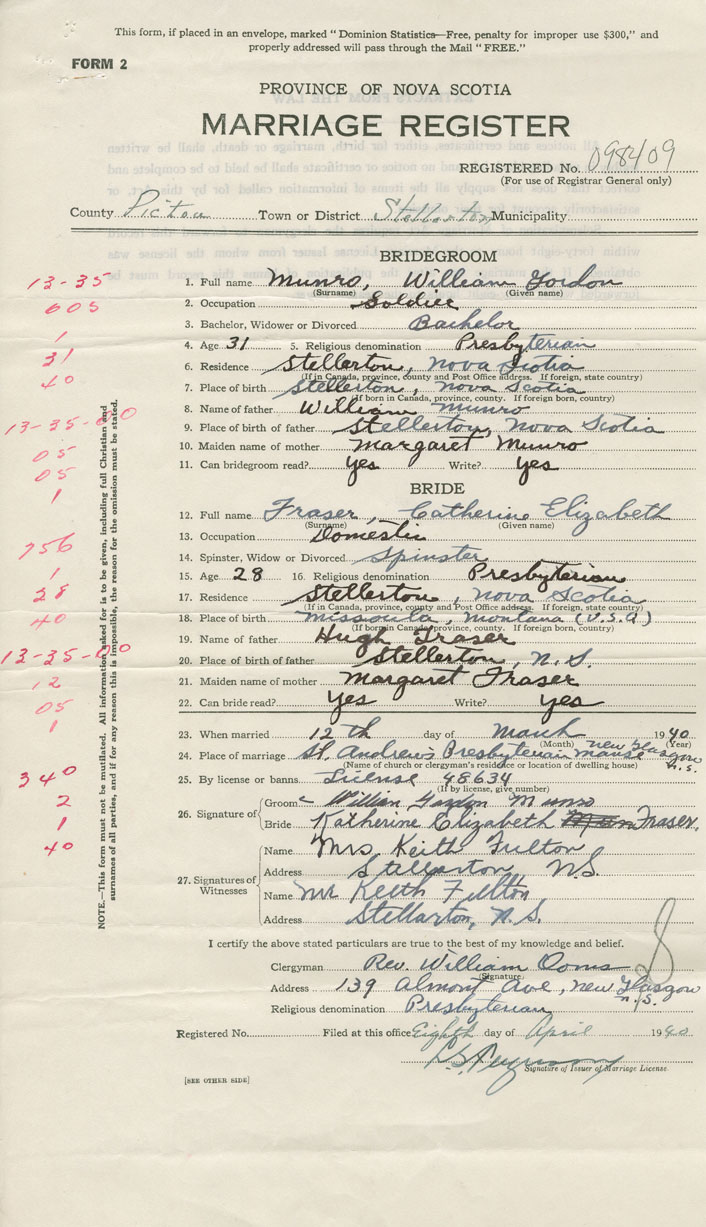 This form, if placed in an envelope, marked "Dominion Statistics—Free, penalty for improper use $300," and
properly addressed will pass through the Mail "FREE."
FORM 2
PROVINCE OF NOVA SCOTIA
MARRIAGE REGISTER
REGISTERED No. 098409
(For use of Registrar General only)
County Pictou Town or District Stellerton Municipality
BRIDEGROOM
13-35 1. Full name Munro, William Gordon
(Surname) (Given name)
605 2. Occupation Soldier
1 3. Bachelor, Widower or Divorced Bachelor
31 4. Age 31 5. Religious denomination Presbyterian
40 6. Residence Stellerton, Nova Scotia
(If in Canada, province, county and Post Office address. If foreign, state country)
7. Place of birth Stellerton, Nova Scotia
(If born in Canada, province, county. If foreign born, country)
8. Name of father William Munro
13-35-00 9. Place of birth of father Stellerton, Nova Scotia
05 10. Maiden name of mother Margaret Munro
05 11. Can bridegroom read? yes Write? yes
1 BRIDE
12. Full name Fraser, Catherine Elizabeth
(Surname) (Given name)
756 13. Occupation Domestic
1 14. Spinster, Widow or Divorced Spinster
28 15. Age 28 16. Religious denomination Presbyterian
17. Residence Stellerton, Nova Scotia
(If in Canada, province, county and Post Office address. If foreign, state country)
40 18. Place of birth Missoula, Montana (U.S.A)
(If born in Canada, province, county. If foreign born, country)
19. Name of father Hugh Fraser
13-35-00 20. Place of birth of father Stellerton, N.S.
12 21. Maiden name of mother Margaret Fraser
05 22. Can bride read? Yes Write? yes
1 23. When married 12th day of March 1940
(Month) (Year)
24. Place of marriage St. Andrew's Presbyterian manse New Glasgow N.S.
(Name of church or clergyman's residence or location of dwelling house)
340 25. By license or banns License 48634
(If by license, give number)
2 26. Signature of Groom William Gordon Munro
1 Bride Katherine Elizabeth Fraser.
40 27. Signatures of Witnesses
Name Mrs. Keith Fulton
Address Stellarton N.S.
Name Mr Keith Fulton
Address Stellarton, N.S.
I certify the above stated particulars are true to the best of my knowledge and belief.
Clergyman Rev. William Ooms
(Signature)
Address 139 Almont Ave, New Glasgow N.S.
Religious denomination Presbyterian
Registered No. Filed at this office Eighth day of April 1940
Signature of Issuer of Marriage License.
[SEE OTHER SIDE]
NOTE.—This form must not be mutilated. All information asked for is to be given, including full Christian and
surnames of all parties, and if for any reason this is impossible, the reason for the omission must be stated.